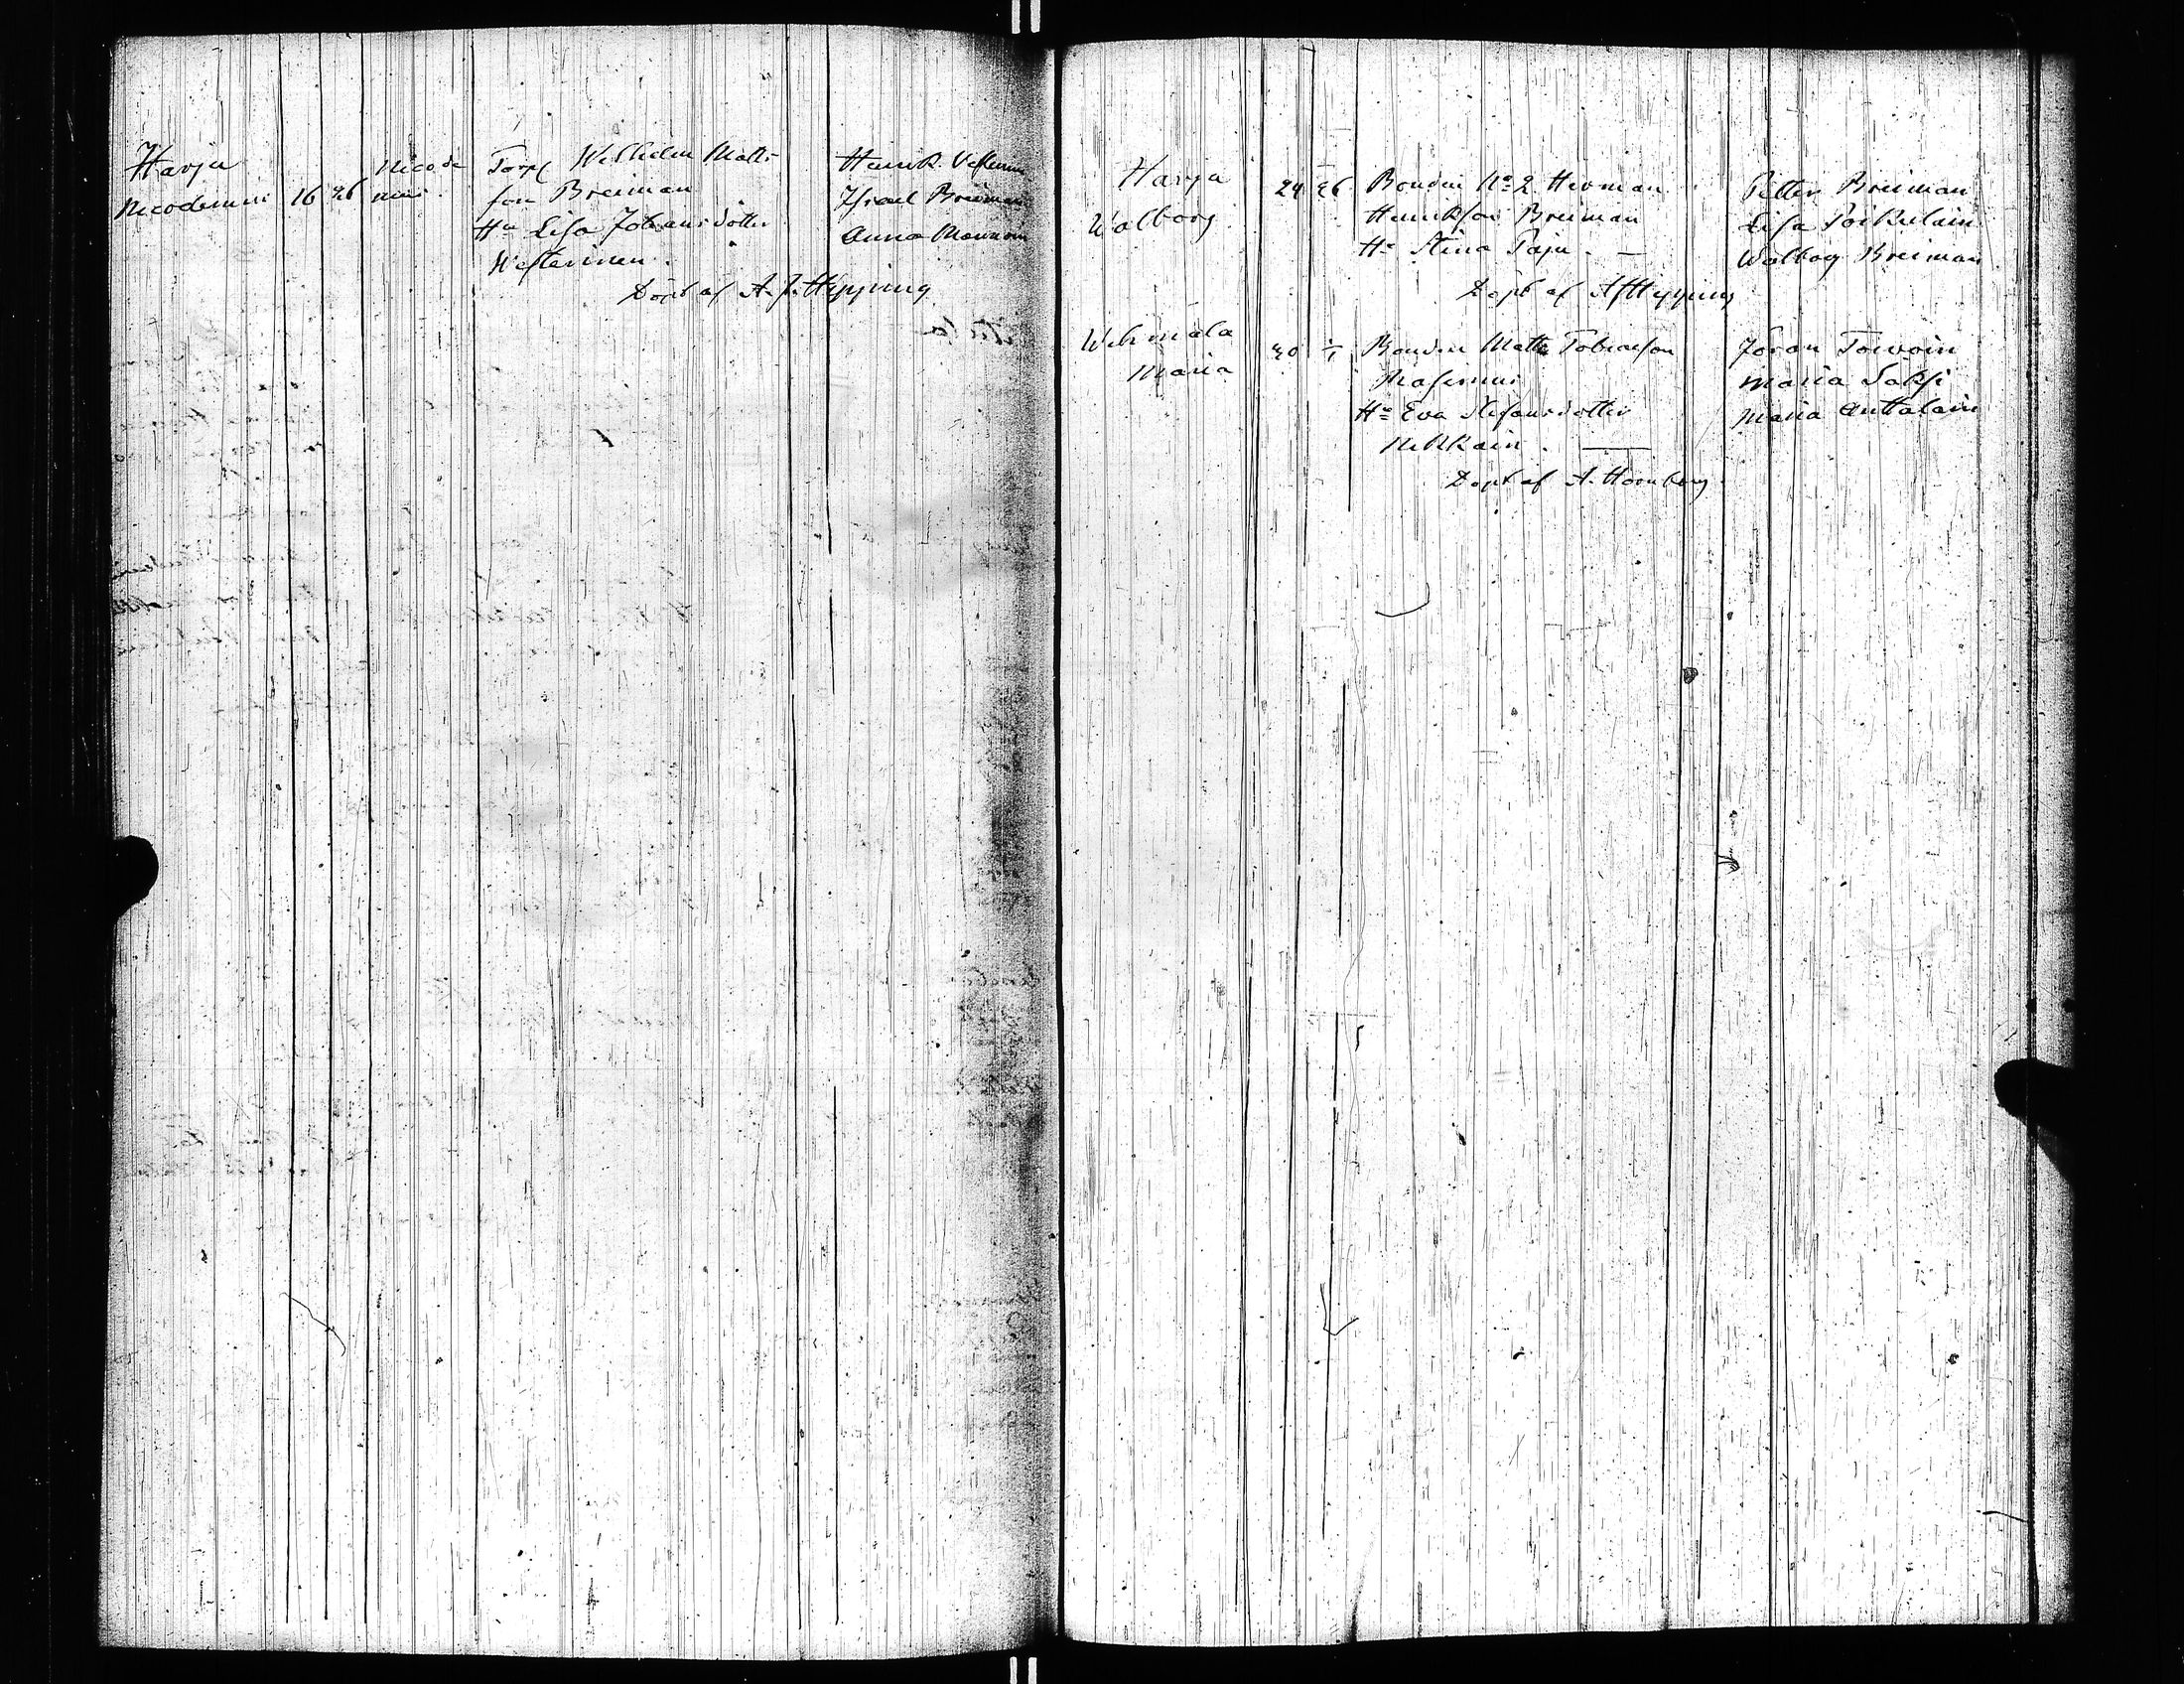 Harju
Nicodemus 16 26 Nicode
mus
Torp Wilhelm Matts
son Breiman
Hu Lisa Johansdotter
Westerinen.
Döpt af A. J. Hipping
Henrik
Israel Breiman
Anna
Harju
Walborg
24 26 Bonden No 2 Herman
Henriksson Breiman
Hu Stina Paju. —
Döpt af AJHipping
Petter Breiman
Lisa Poikelain
Walborg Breiman
Wehmala
Maria
30 Bonden Matts Tobiasson
Hu Eva Stefansdotter
Nikkain. —
Döpt af A. Hornborg.
Joran Toivoin
Maria Saksi
Maria Anttalain